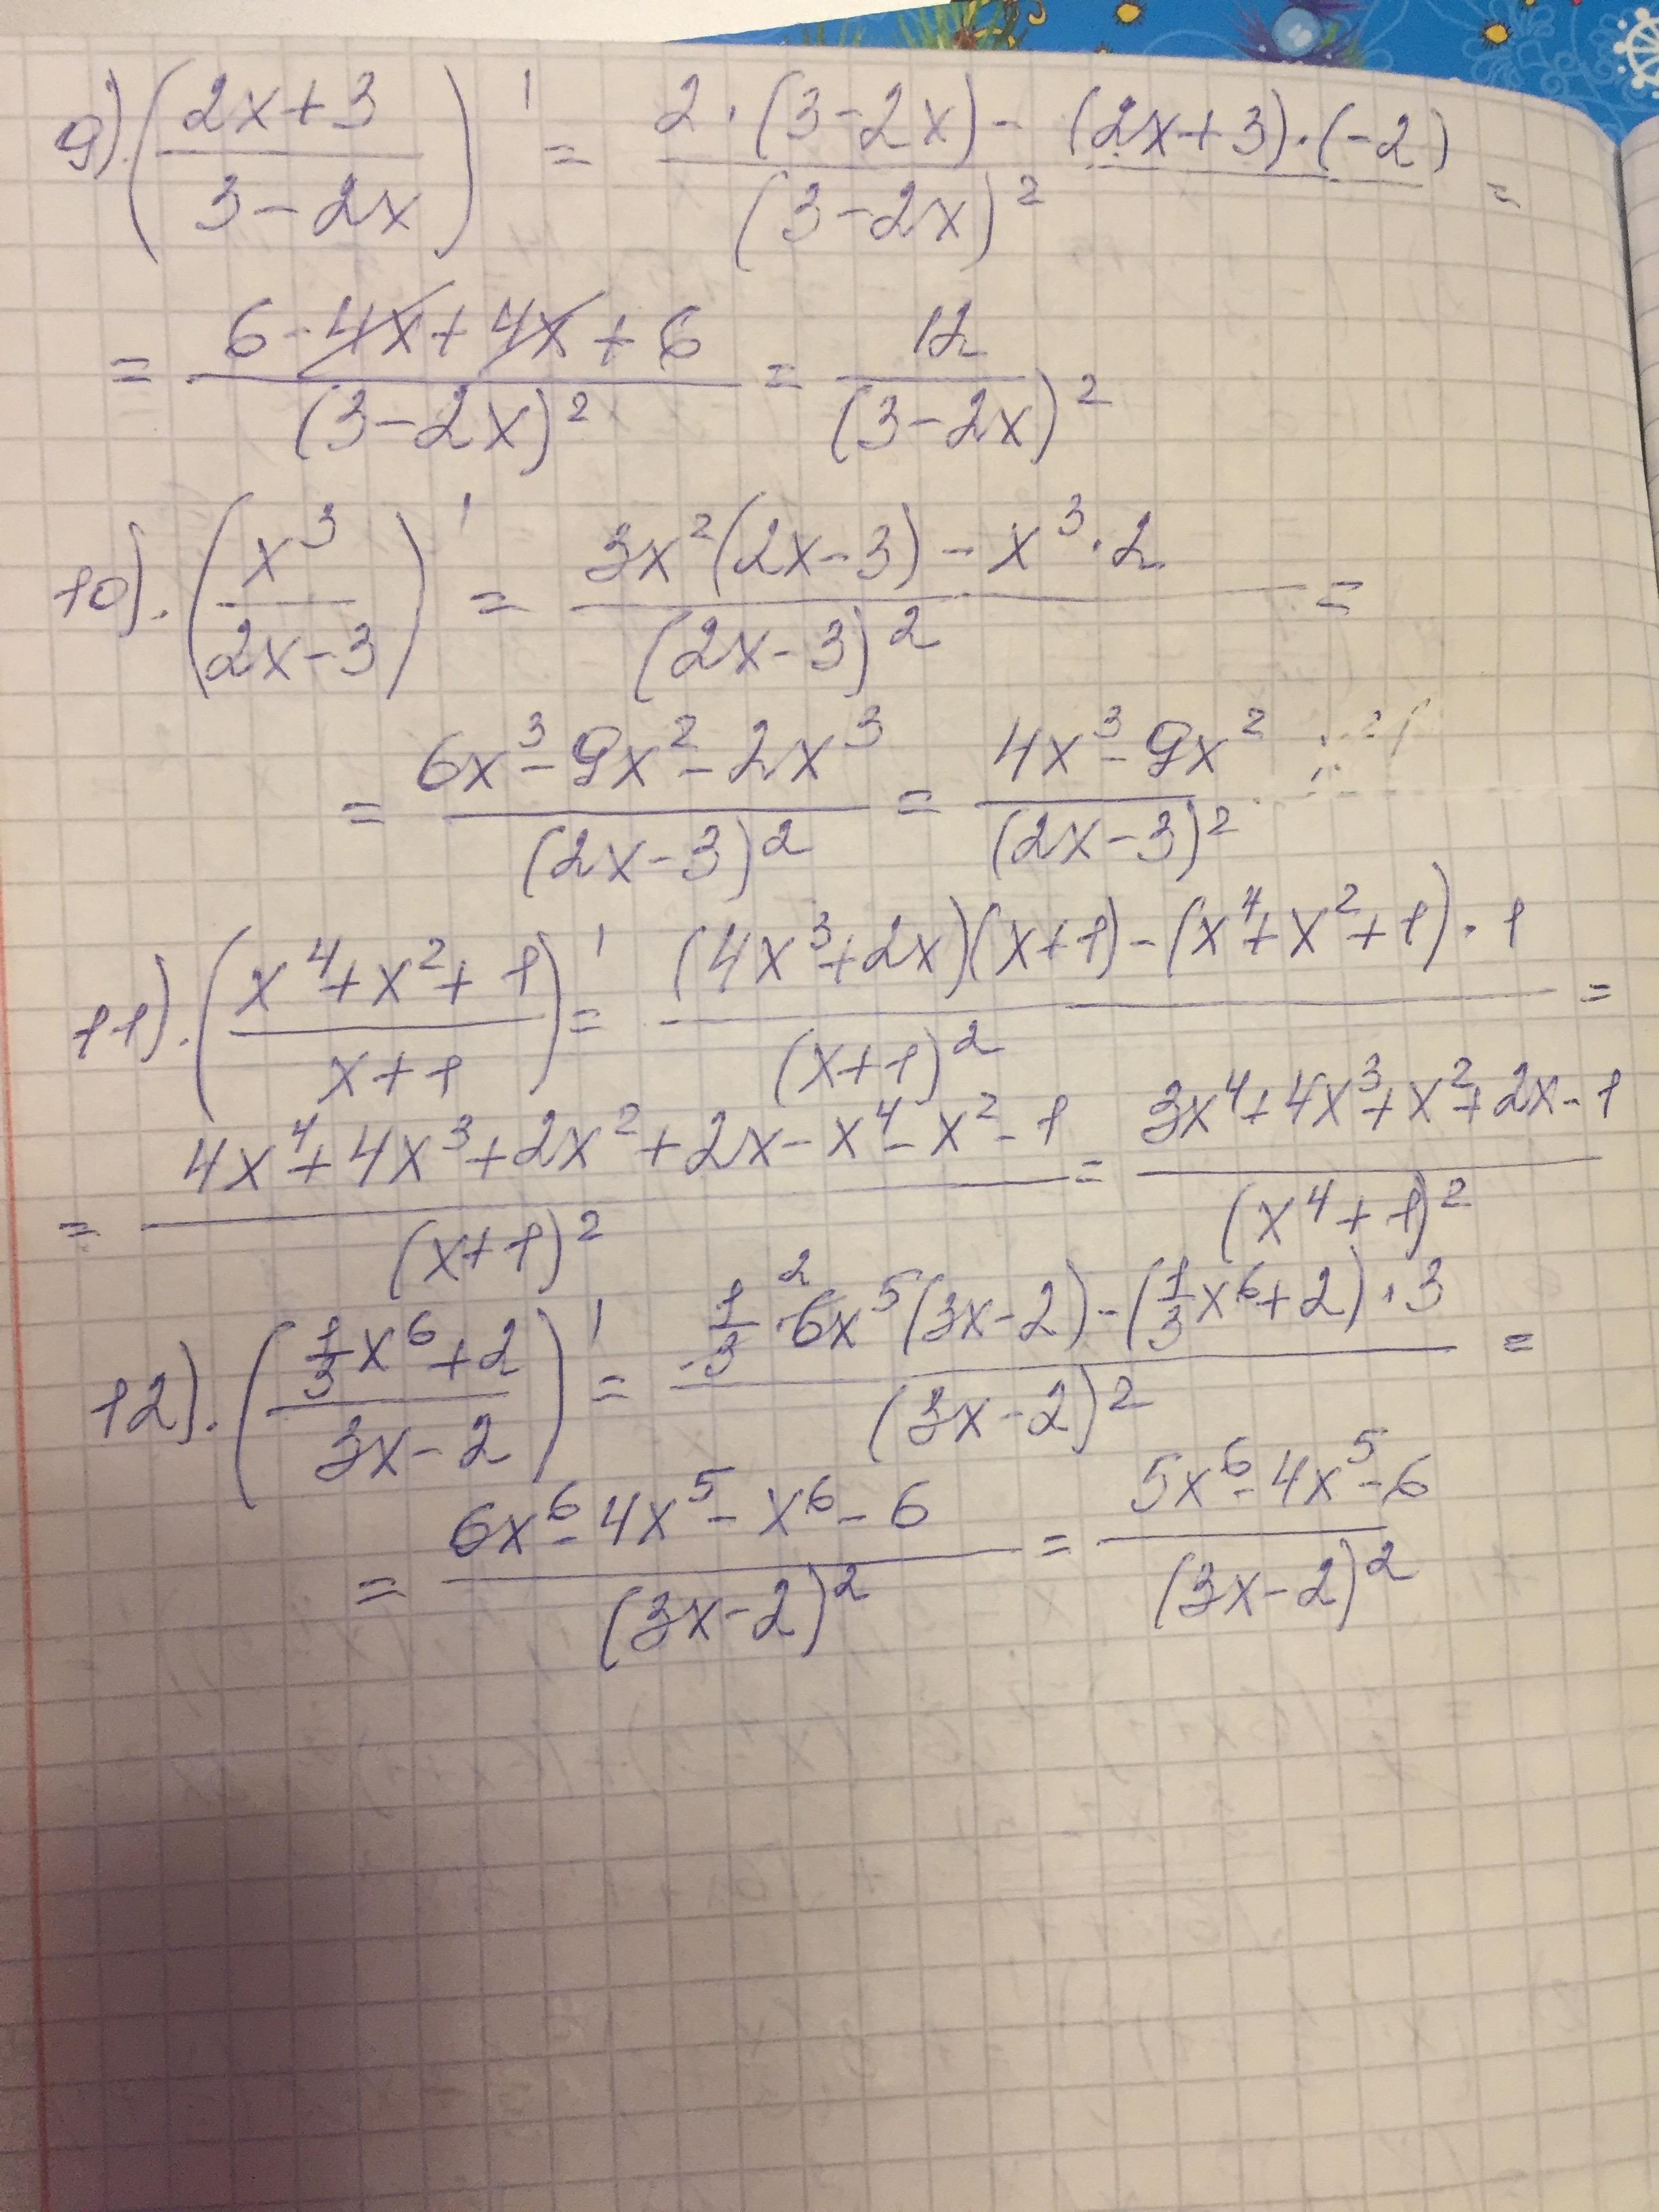 9). ((2x+3)/(3-2x))' = (2·(3-2x)-(2x+3)·(-2))/(3-2x)² =
= (6-4x+4x+6)/(3-2x)² = 12/(3-2x)²
10). (x³/(2x-3))' = (3x²(2x-3)-x³·2)/(2x-3)² =
= (6x³-9x²-2x³)/(2x-3)² = (4x³-9x²)/(2x-3)²
11). ((x⁴+x²+1)/(x+1))' = ((4x³+2x)(x+1)-(x⁴+x²+1)·1)/(x+1)² =
= (4x⁴+4x³+2x²+2x-x⁴-x²-1)/(x+1)² = (3x⁴+4x³+x²+2x-1)/(x⁴+1)²
12). ((1/3x⁶+2)/(3x-2))' = (1/3·6²x⁵(3x-2)-(1/3x⁶+2)·3)/(3x-2)² =
= (6x⁶-4x⁵-x⁶-6)/(3x-2)² = (5x⁶-4x⁵-6)/(3x-2)²